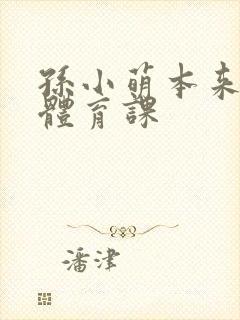 孫小萌本來
體育課
潘津